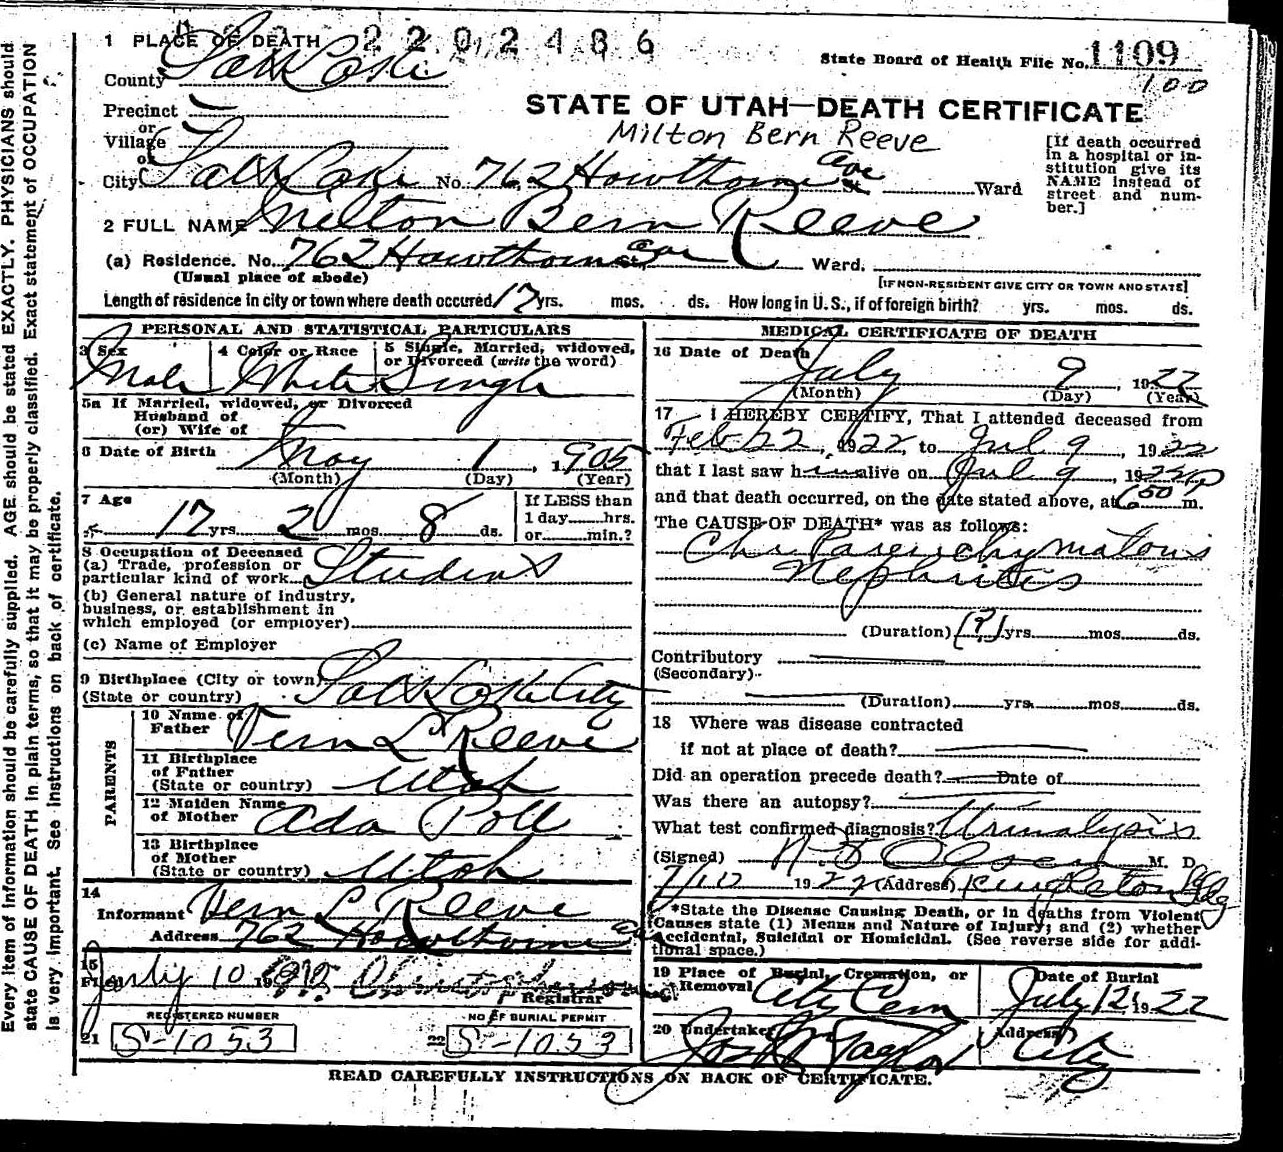 Every item of information should be carefully supplied. AGE should be stated EXACTLY. PHYSICIANS should
state CAUSE OF DEATH in plain terms, so that it may be properly classified. Exact statement of OCCUPATION
is very important. See instructions on back of certificate.
2202486
1 PLACE OF DEATH
State Board of Health File No. 1109
100
County Salt Lake
Precinct
STATE OF UTAH—DEATH CERTIFICATE
or
Village
Milton Bern Reeve
[If death occurred in a hospital or institution give its NAME instead of street and number.]
or
City Salt Lake No. 762 Hawthorne Ave St. Ward
2 FULL NAME Milton Bern Reeve
(a) Residence. No. 762 Hawthorne St. Ave Ward.
(Usual place of abode)
[IF NON-RESIDENT GIVE CITY OR TOWN AND STATE]
Length of residence in city or town where death occured 17 yrs. mos. ds. How long in U. S., if of foreign birth? yrs. mos. ds.
PERSONAL AND STATISTICAL PARTICULARS
3 Sex
4 Color or Race
5 Single, Married, widowed,
or Divorced (write the word)
Male White Single
5a If Married, widowed, or Divorced
Husband of
(or) Wife of
6 Date of Birth May 1, 1905
(Month) (Day) (Year)
7 Age
17 yrs. 2 mos. 8 ds.
If LESS than
1 day hrs.
or min.?
8 Occupation of Deceased
(a) Trade, profession or
particular kind of work Student
(b) General nature of industry,
business, or establishment in
which employed (or employer)
(c) Name of Employer
9 Birthplace (City or town)
(State or country) Salt Lake City
PARENTS
10 Name of
Father Vern L Reeve
11 Birthplace
of Father
(State or country) Utah
12 Maiden Name
of Mother Ada Poll
13 Birthplace
of Mother
(State or country) Utah
14
Informant Vern L Reeve
Address 762 Hawthorne Ave
15
Filed July 10 1922
Registrar
REGISTERED NUMBER
NO OF BURIAL PERMIT
21 S-1053
22 S-1053
MEDICAL CERTIFICATE OF DEATH
16 Date of Death
July 9, 1922
(Month) (Day) (Year)
17 I HEREBY CERTIFY, That I attended deceased from
Feb 22, 1922, to Jul 9, 1922
that I last saw him alive on Jul 9, 1922
and that death occurred, on the date stated above, at 650 P m.
The CAUSE OF DEATH* was as follows:
Chr Parenchymatous
Nephritis
(Duration) (?) yrs. mos. ds.
Contributory
(Secondary)
(Duration) yrs. mos. ds.
18 Where was disease contracted
if not at place of death?
Did an operation precede death? Date of
Was there an autopsy?
What test confirmed diagnosis? Urinalysis
(Signed) Olsen M. D.
7/10 1922 (Address) Templeton Bldg
*State the Disease Causing Death, or in deaths from Violent
Causes state (1) Means and Nature of Injury; and (2) whether
Accidental, Suicidal or Homicidal. (See reverse side for addi-
tional space.)
19 Place of Burial, Cremation, or
Removal City Cem
Date of Burial
July 12 1922
20 Undertaker Jos Wm Taylor
Address City
READ CAREFULLY INSTRUCTIONS ON BACK OF CERTIFICATE.